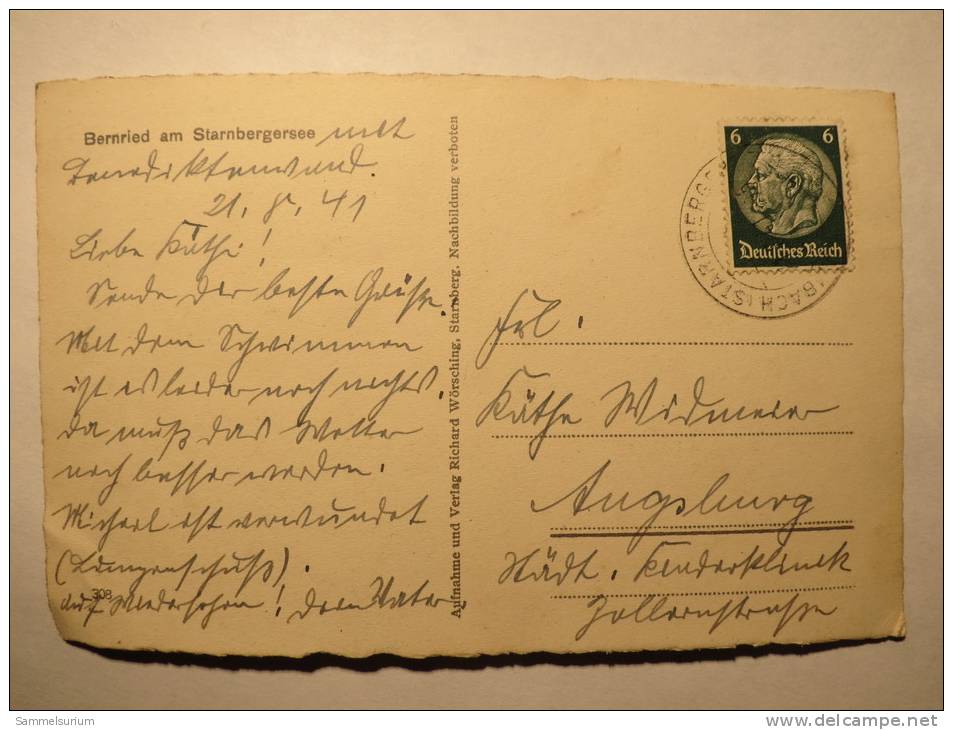 Bernried am Starnbergersee mit
Benediktenwand.
21. 8. 41
Liebe Käthe!
Sende dir beste Grüße.
Mit dem Schwimmen
ist es leider noch nichts,
da muß das Wetter
noch besser werden.
Michael ist verwundet
(Lungenschuß).
auf Wiedersehen! dein Vater
308
Aufnahme und Verlag Richard Wörsching, Starnberg. Nachbildung verboten
6 6
Deutsches Reich
BACH (STARNBERGS
Frl.
Käthe Widmeier
Augsburg
Städt. Kinderklinik
Zollernstraße
Sammelsurium
http://www.delcampe.net